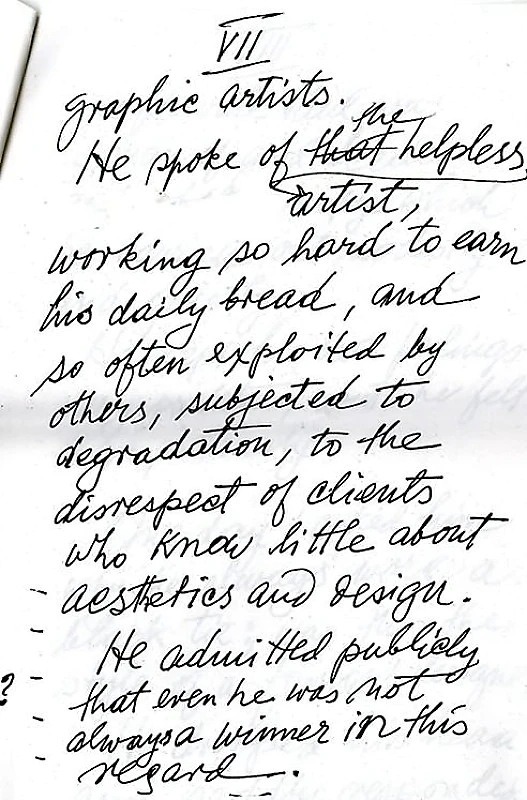 VII
graphic artists.
the
He spoke of that helpless
artist,
working so hard to earn
his daily bread, and
so often exploited by
others, subjected to
degradation, to the
disrespect of clients
who know little about
aesthetics and design.
He admitted publicly
? that even he was not
always a winner in this
regard.